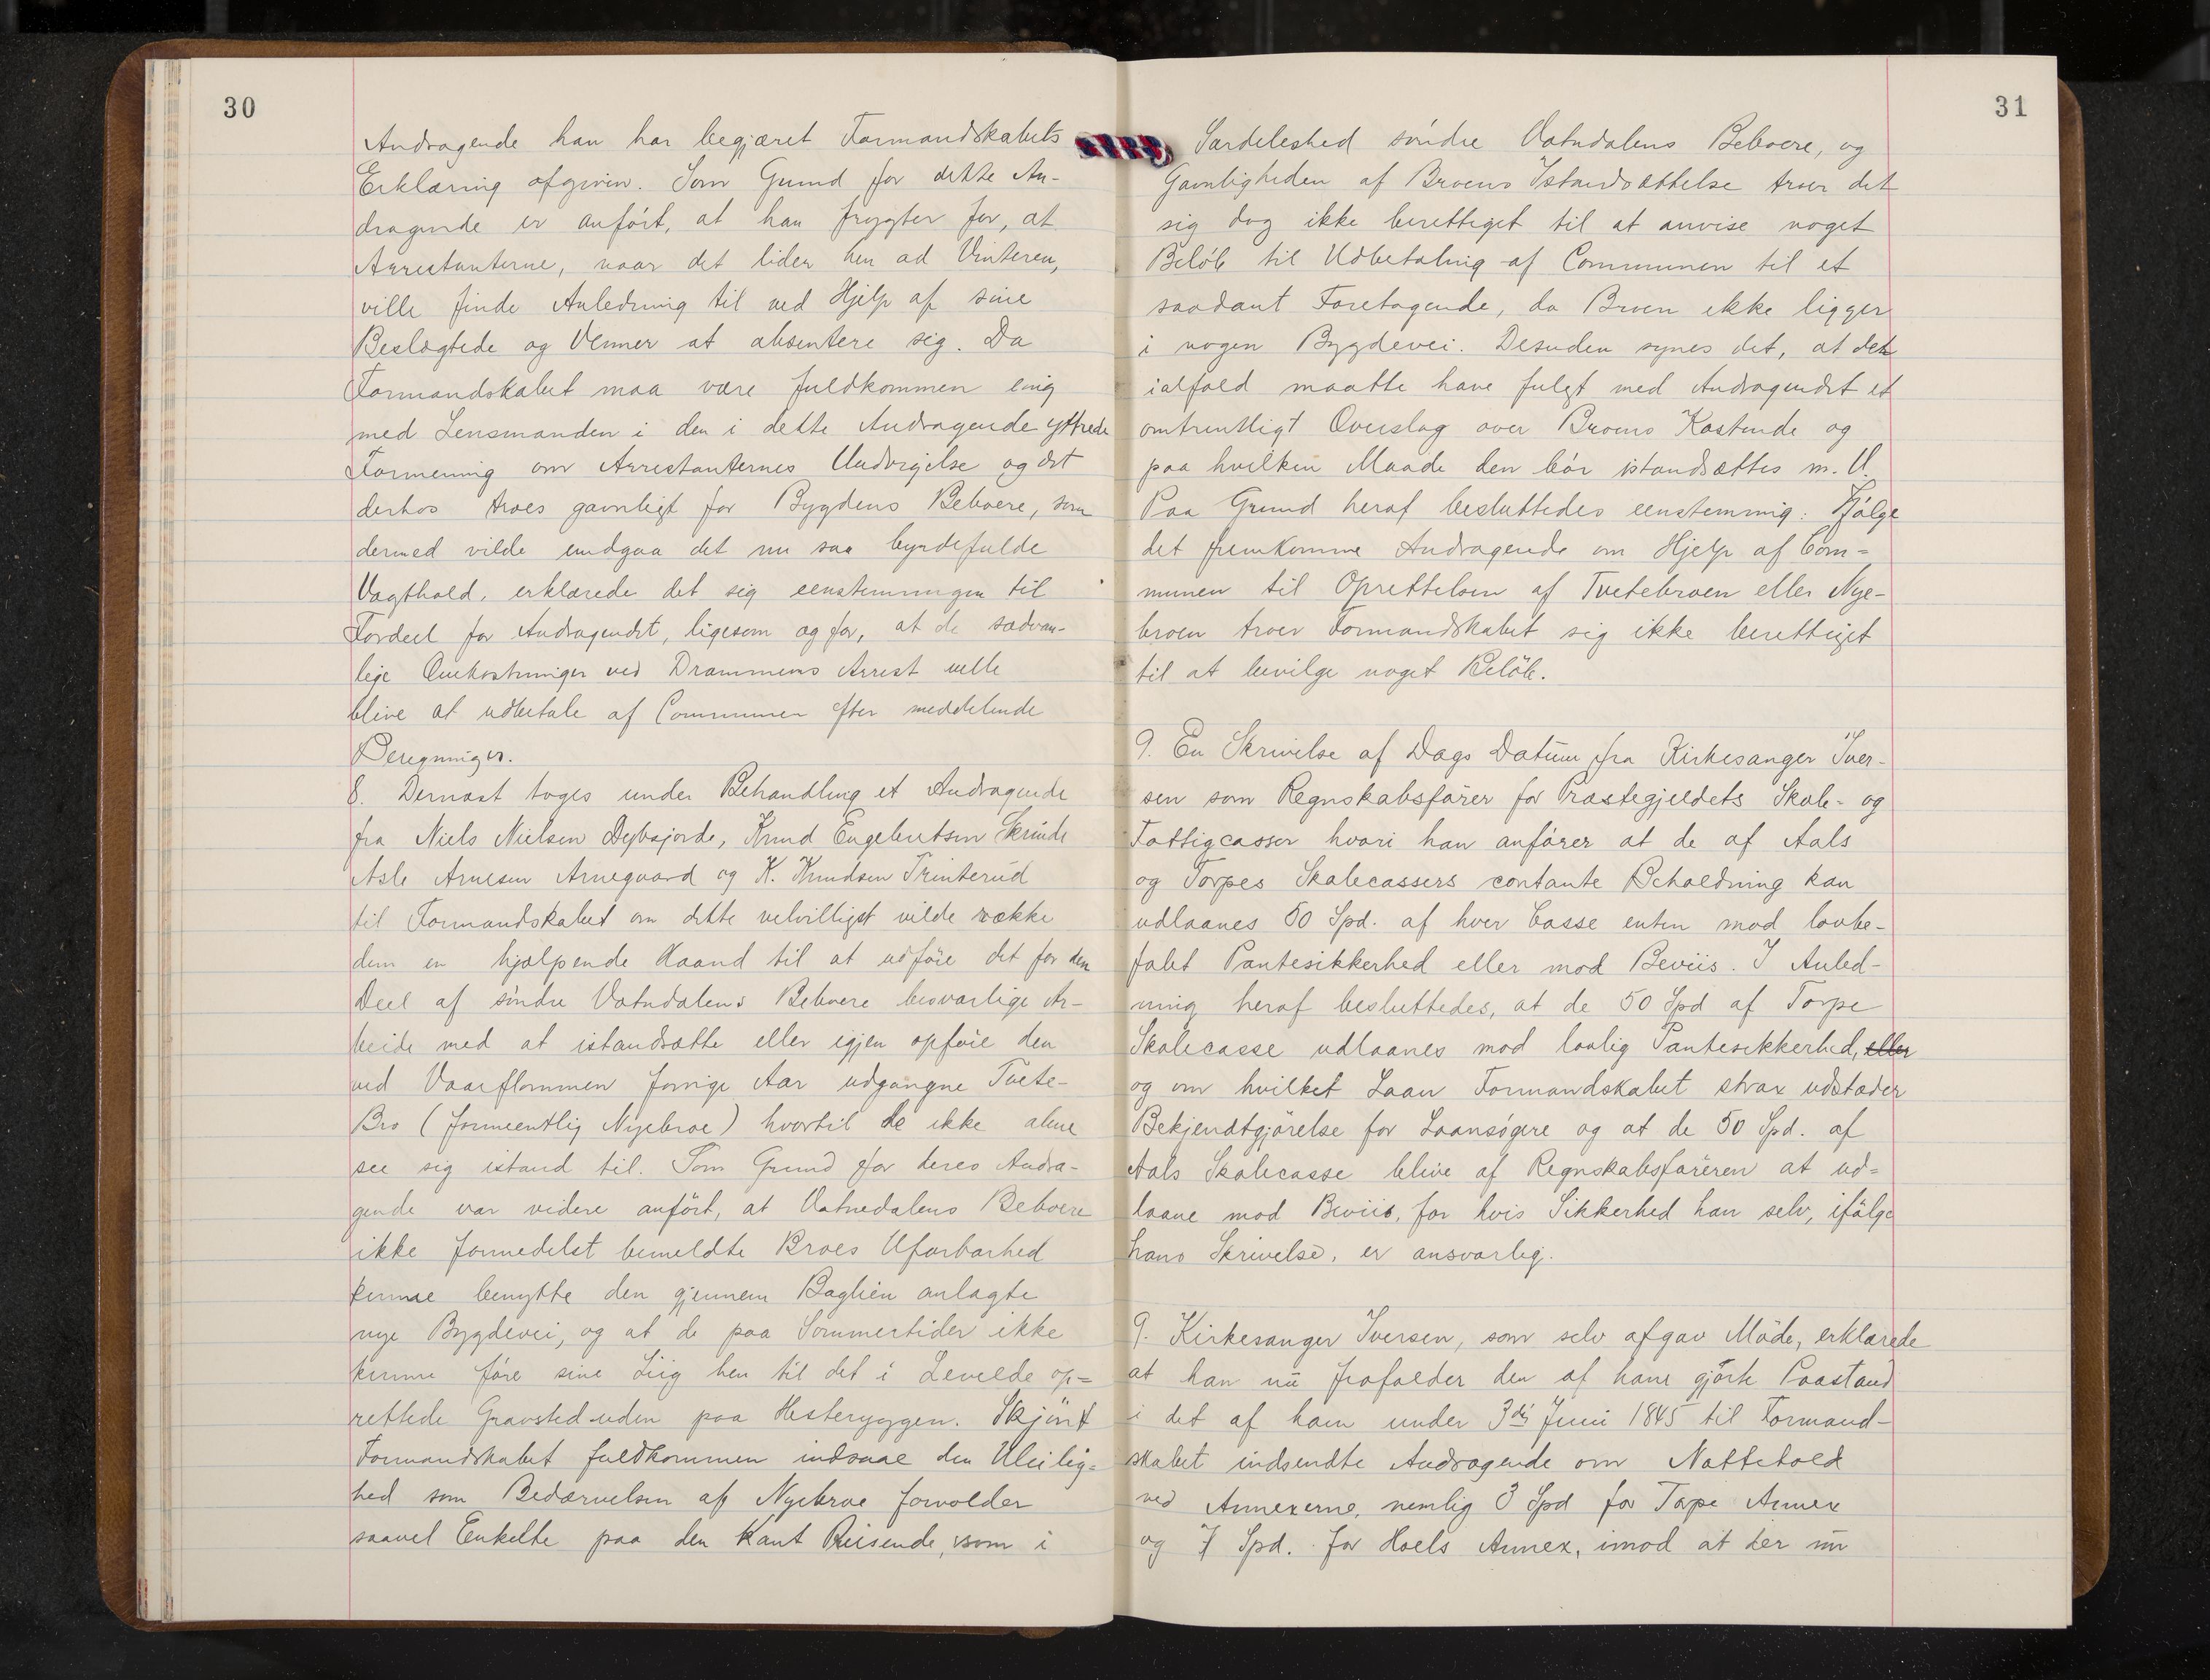 30
Andragende han har begjæret Formandskabets
Erklæring afgiven. Som Grund for dette An-
dragende er anført, at han frygter for, at
Arrestanterne, naar det lider hen ad Vinteren,
ville finde Anledning til ved Hjelp af sine
Beslægtede og Venner at absentere sig. Da
Formandskabet maa være fuldkommen enig
med Lensmanden i den i dette Andragende yttrede
Formening om Arrestanternes Undvigelse og det
derhos troes gavnligt for Bygdens Beboere, som
dermed vilde undgaa det nu saa byrdefulde
Vagthold, erklærede det sig eenstemmigen til
Fordeel for Andragendet, ligesom og for, at de sædvan-
lige Omkostninger ved Drammens Arrest ville
blive at udbetale af Communen efter meddelende
Beregninger.
8. Dernæst toges under Behandling et Andragende
fra Niels Nielsen Dybsjorde, Knud Engebretsen Skrinde
Asle Arnesen Arnegaard og K. Knudsen Trinterud
til Formandskabet om dette velvilligst vilde række
dem en hjælpende Haand til at udføre det for den
Deel af søndre Vatndalens Beboere besværlige Ar-
beide med at istandsætte eller igjen opføre den
ved Vaarflommen forrige Aar udgangne Tvete-
Bro (formeentlig Nyebroe) hvortil de ikke alene
see sig istand til. Som Grund for deres Andra-
gende var videre anført, at Vatnedalens Beboere
ikke formedelst bemeldte Broes Ufarbarhed
kunne benytte den gjennem Baglien anlagte
nye Bygdevei, og at de paa Sommertider ikke
kunne føre sine Liig hen til det i Levelde op=
rettede Gravsted uden paa Hesteryggen. Skjönt
Formandskabet fuldkommen indsaae den Uleilig=
hed som Bedærvelsen af Nyebroe forvolder
saavel Enkelte paa den Kant Reisende, som i
31
Særdeleshed söndre Vatndalens Beboere, og
Gavnligheden af Broens Istandsættelse troer det
sig dog ikke berettiget til at anvise noget
Beløb til Udbetaling af Communen til et
saadant Foretagende, da Broen ikke ligger
i nogen Bygdevei. Desuden synes det, at det
ialfald maatte have fulgt med Andragendet et
omtrentligt Overslag over Broens Kostende og
paa hvilken Maade den bør istandsættes m. V.
Paa Grund heraf besluttedes eenstemmig: Ifølge
det fremkomne Andragende om Hjelp af Com=
munen til Oprettelsen af Tvetebroen eller Nye-
broen troer Formandskabet sig ikke berettiget
til at bevilge noget Beløb.
9. En Skrivelse af Dags Datum fra Kirkesanger Iver-
sen som Regnskabsfører for Præstegjeldets Skole- og
Fattigcasser hvori han anfører at de af Aals
og Torpes Skolecassers contante Beholdning kan
udlaanes 50 Spd. af hver Casse enten mod lovbe-
falet Pantesikkerhed eller mod Beviis. I Anled-
ning heraf besluttedes, at de 50 Spd af Torpe
Skolecasse udlaanes mod lovlig Pantesikkerhed, eller
og om hvilket Laan Formandskabet strax udstæder
Bekjendtgjørelse for Laansøgere og at de 50 Spd. af
Aals Skolecasse blive af Regnskabsføreren at ud=
laane mod Beviis, for hvis Sikkerhed han selv, ifølge
hans Skrivelse, er ansvarlig.
9. Kirkesanger Iversen, som selv afgav Møde, erklærede
at han nu frafalder den af ham gjørte Paastand
i det af ham under 3die Juni 1845 til Formand-
skabet indsendte Andragende om Nattehold
ved Annexerne, nemlig 3 Spd for Torpe Annex
og 7 Spd. for Hoels Annex, imod at der nu